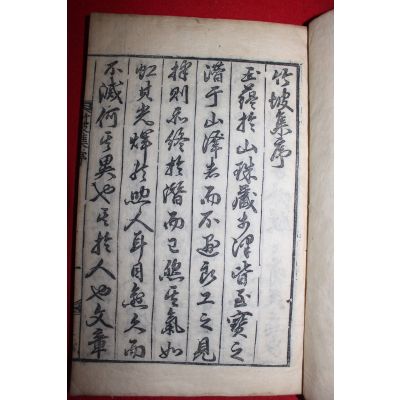 竹坡集序
玉蘊於山珠藏於澤皆至寶之
潛于山澤者而不遇良工之見
採則終於潛而已然其氣如
虹其光輝照人耳目愈久而
不滅何其異也其於人也文章